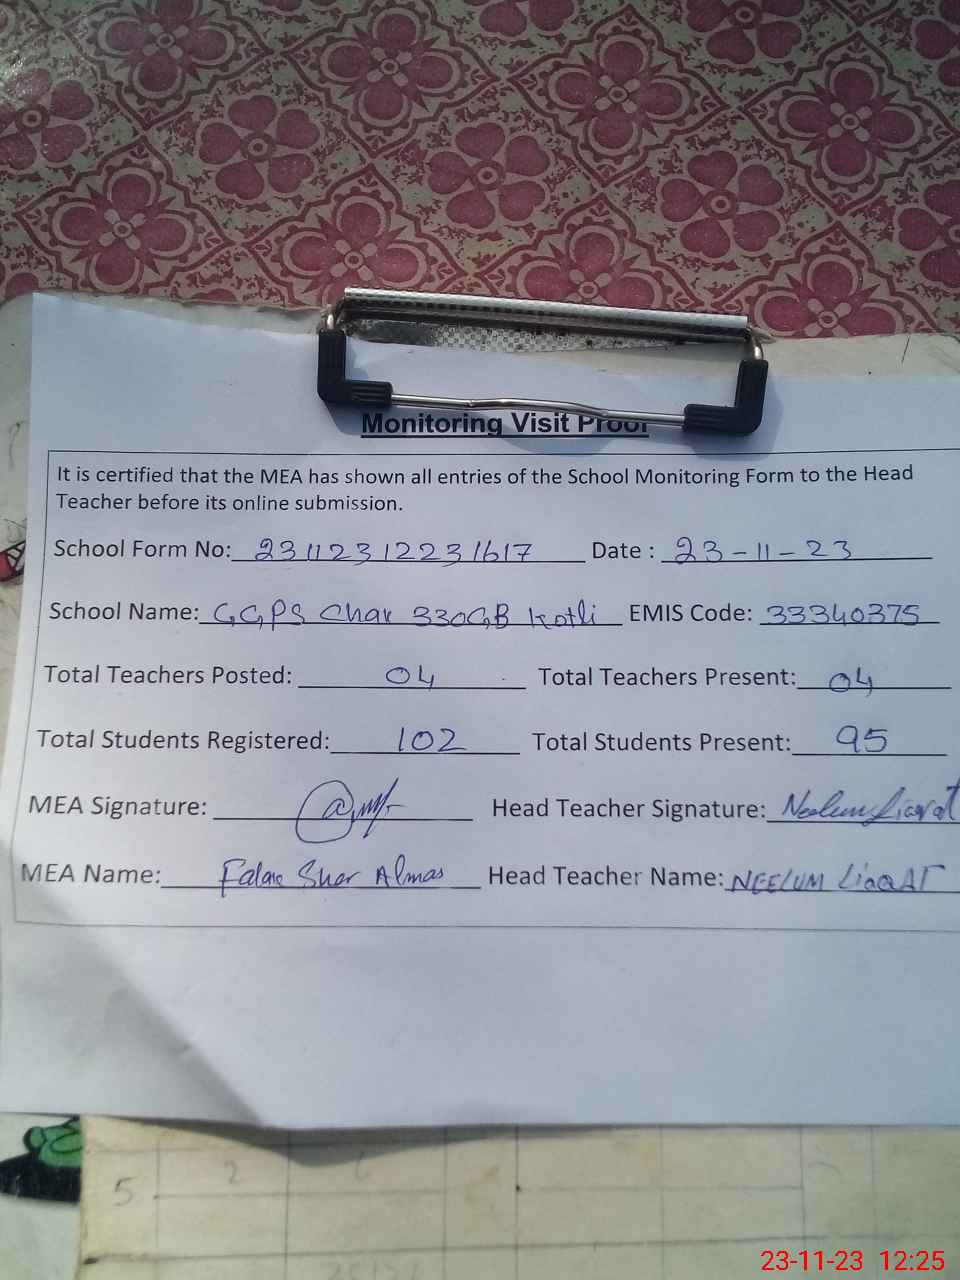 Monitoring Visit Proof
It is certified that the MEA has shown all entries of the School Monitoring Form to the Head
Teacher before its online submission.
School Form No: 23112312231617 Date : 23-11-23
School Name: GGPS Chak 330GB Kotli EMIS Code: 33340375
Total Teachers Posted: 04 Total Teachers Present: 04
Total Students Registered: 102 Total Students Present: 95
MEA Signature: Head Teacher Signature: Neelum Liaqat
MEA Name: Falak Sher Almas Head Teacher Name: NEELUM LiaQAT
5 2
23-11-23 12:25